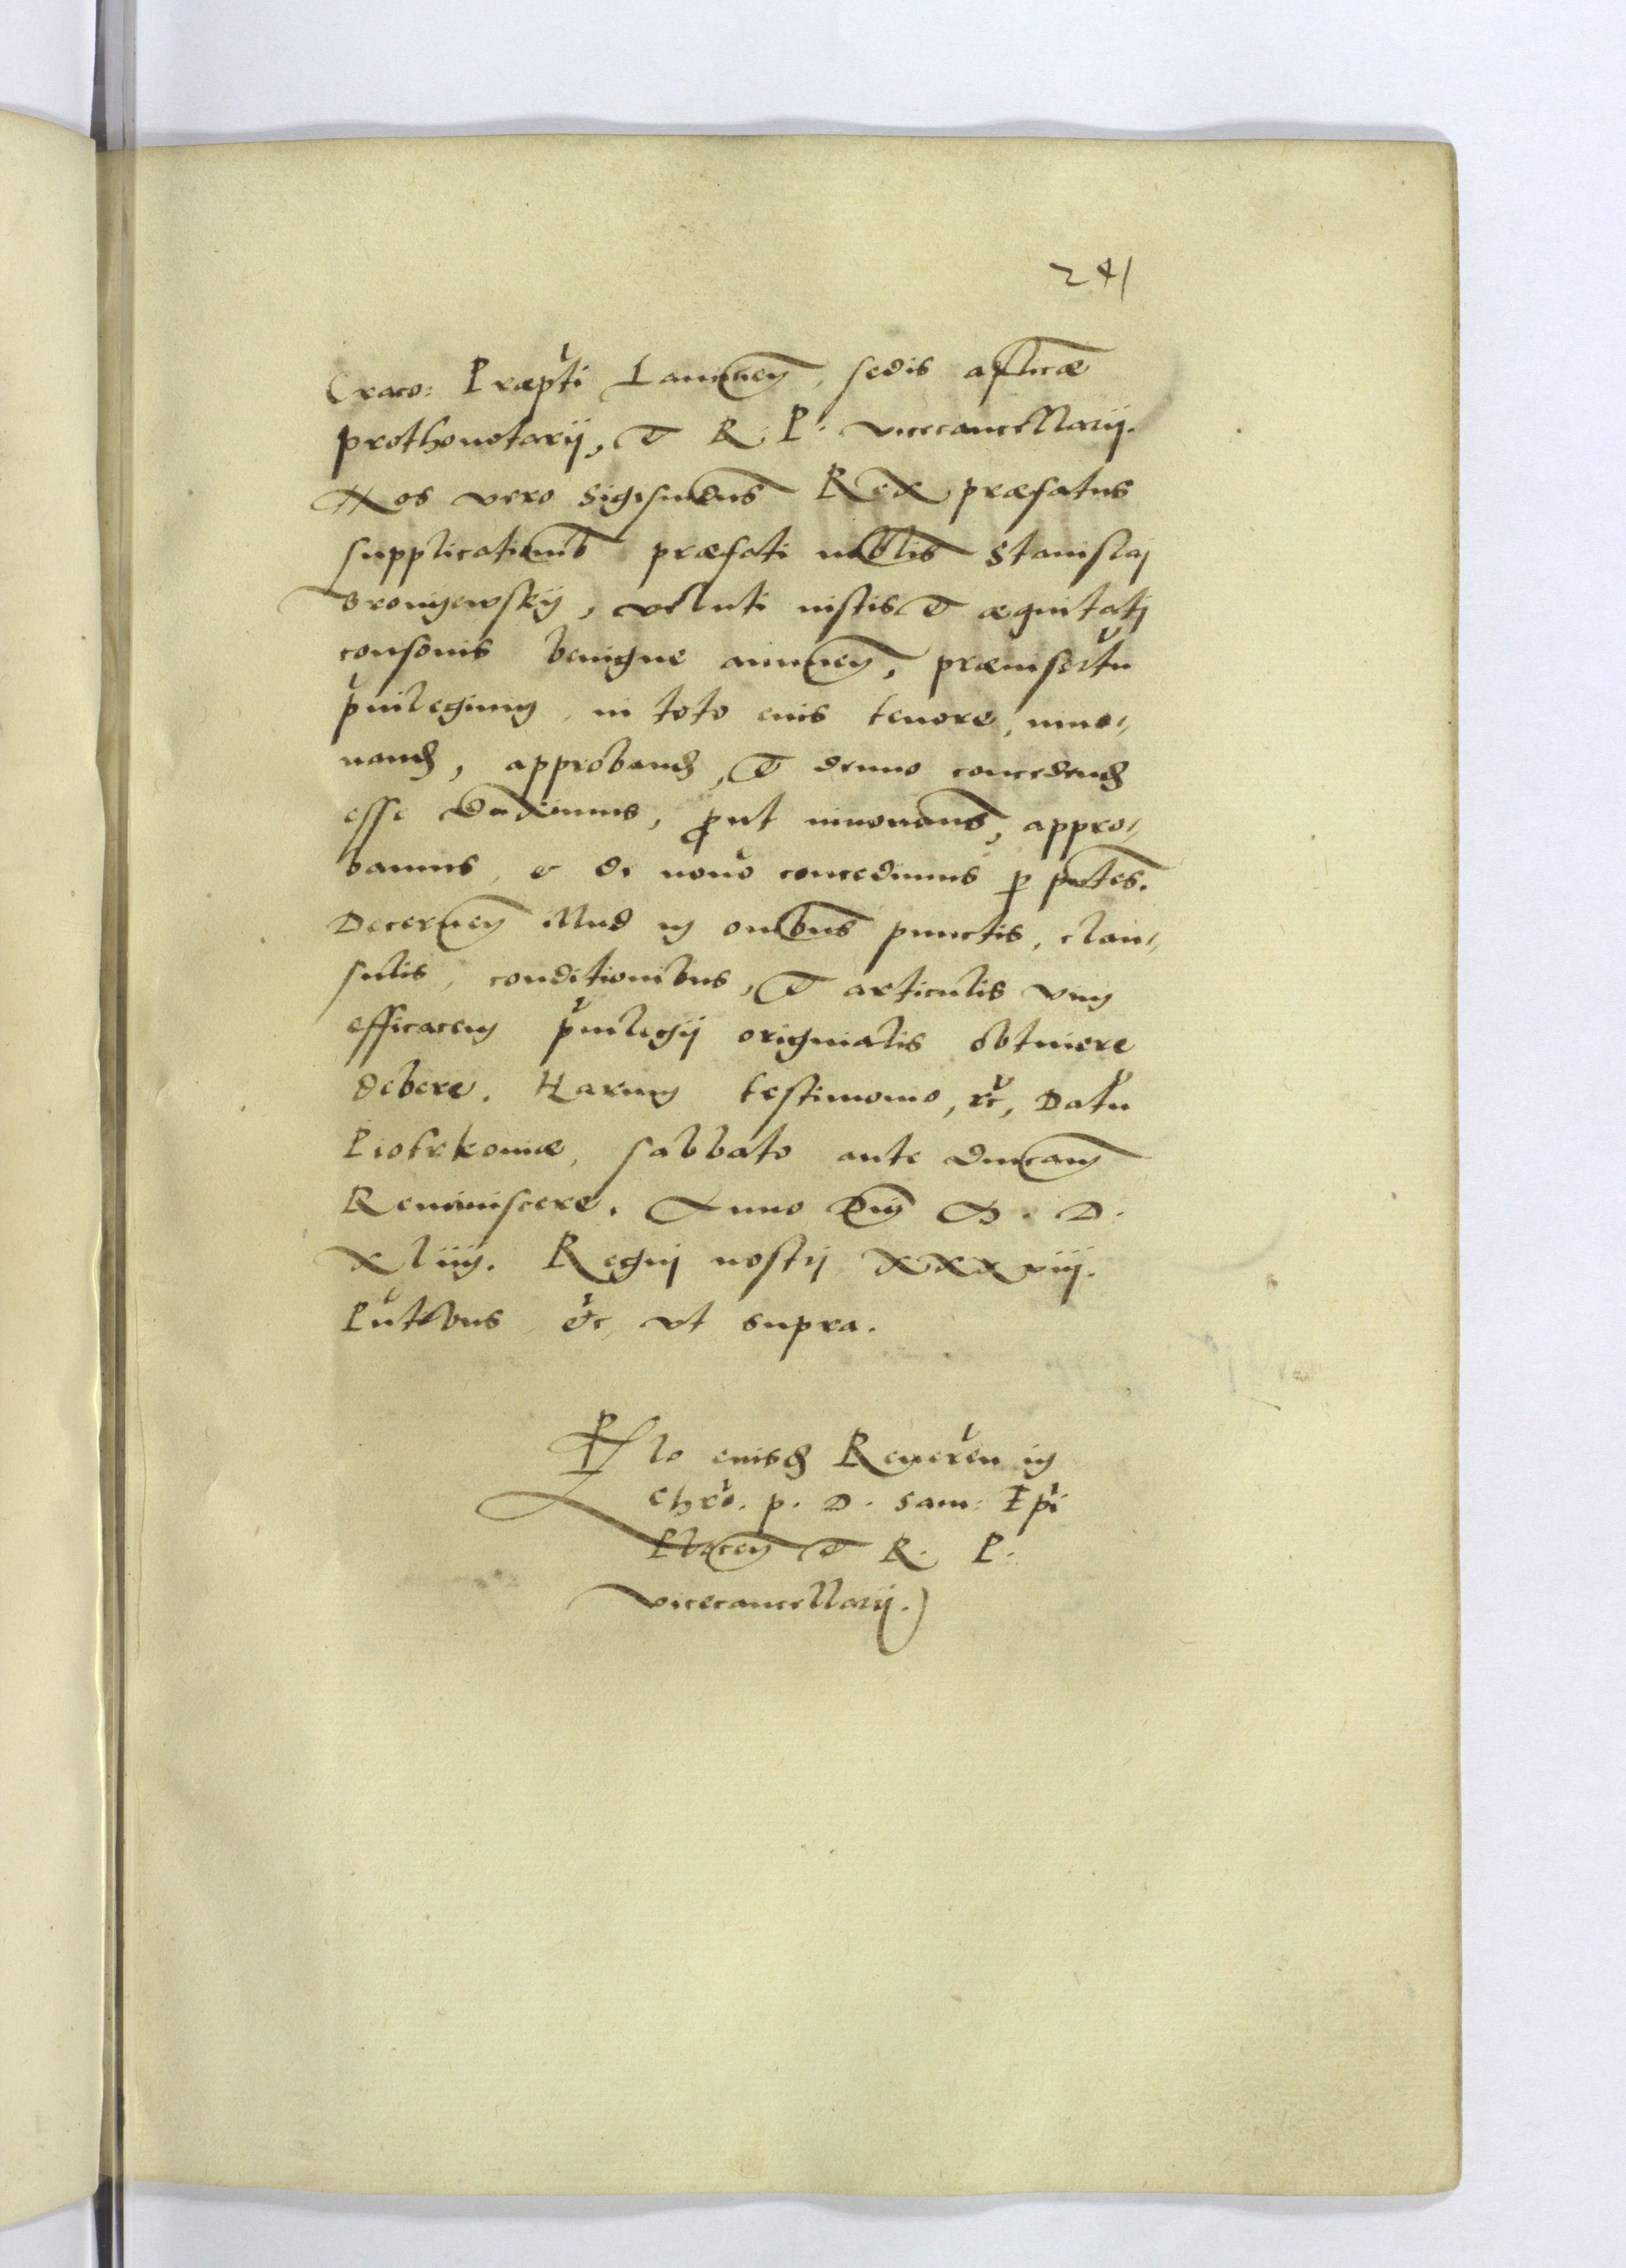 241
Craco: Præpti Lancicieñ, sedis aplicæ
prothonotarij, & R. P. vicecancellarij.
Nos vero Sigismdus Rex præfatus
supplicationib præfati nobilis Stanislaj
veluti iustis & æquitatj
consonis benigne annueñ, præinsertu
priuilegium, in toto eius tenore, inno„
uand, approband, & denuo concedend
esse duximus, put innouamus, appro„
bamus, & de nouo concedimus p pntes.
Decerneñ illud in omibus punctis, clau„
sulis, conditionibus, & articulis vim
efficacem priuilegij originalis obtinere
debere. Harum testimonio, &c, Datu
Piotrkouiæ, sabbato ante dnicam
Reminiscere. Anno Dnj M. D.
xliiij. Regnj nostrj xxxviij.
Pntibus &c, vt supra.
Rlo eiusd Reueren in
Chro. p. D. Sam: Epi
Ploceñ & R. P.
vicecancellarij.